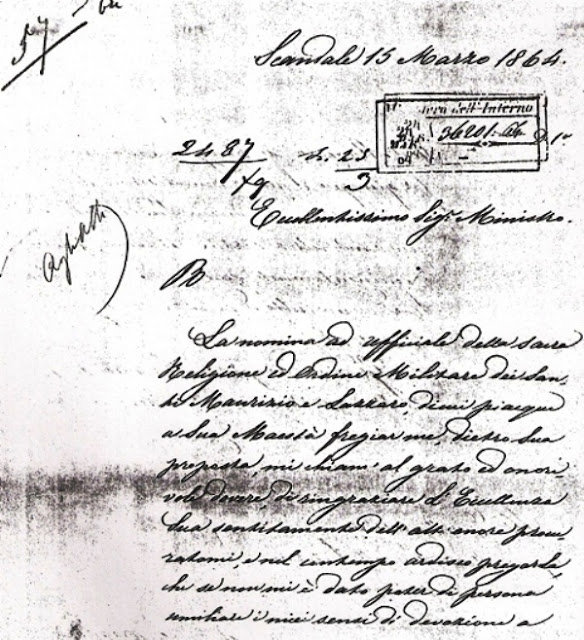 57
Scandale 15 Marzo 1864.
dell'Interno
36201.
24.87
19
3
Eccellentissimo Sigr Ministro.
La nomina ad uffiziale della sacra
Religione ed Ordine Militare dei San,
ti Maurizio e Lazzaro di cui piacque
a Sua Maestà fregiarme, dietro Sua
proposta mi chiama al grato ed onori,
vole dovere di ringraziare L'Eccellenza
Sua sentitamente dell'alto onore procu,
ratomi, e nel contempo ardisco pregarLa
che se non mi è dato poter di persona
umiliare i miei sensi di devozione a